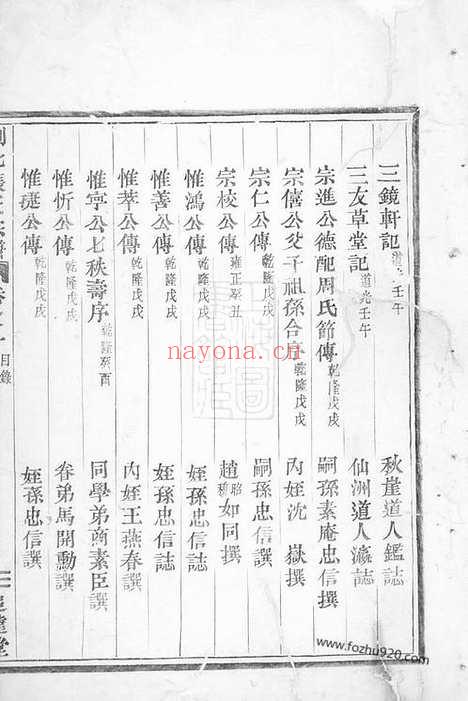 三鏡軒記 道光壬午 秋崖道人鑑誌
三友草堂記 道光壬午 仙洲道人瀛誌
宗進公德配周氏節傳 乾隆戊戌 嗣孫素庵忠信撰
宗僖公父子祖孫合序 乾隆戊戌 內姪沈嶽撰
宗仁公傳 乾隆戊戌 嗣孫忠信撰
宗校公傳 雍正癸丑 趙如同撰
惟鴻公傳 乾隆戊戌 姪孫忠信誌
惟善公傳 乾隆戊戌 姪孫忠信誌
惟萃公傳 乾隆戊戌 內姪王燕春譔
惟亨公七秩壽序 乾隆癸酉 同學弟商素臣譔
惟忻公傳 乾隆戊戌 眷弟馬開勳譔
惟珽公傳 乾隆戊戌 姪孫忠信譔
目錄
nayona.cn
www.fozhu920.com